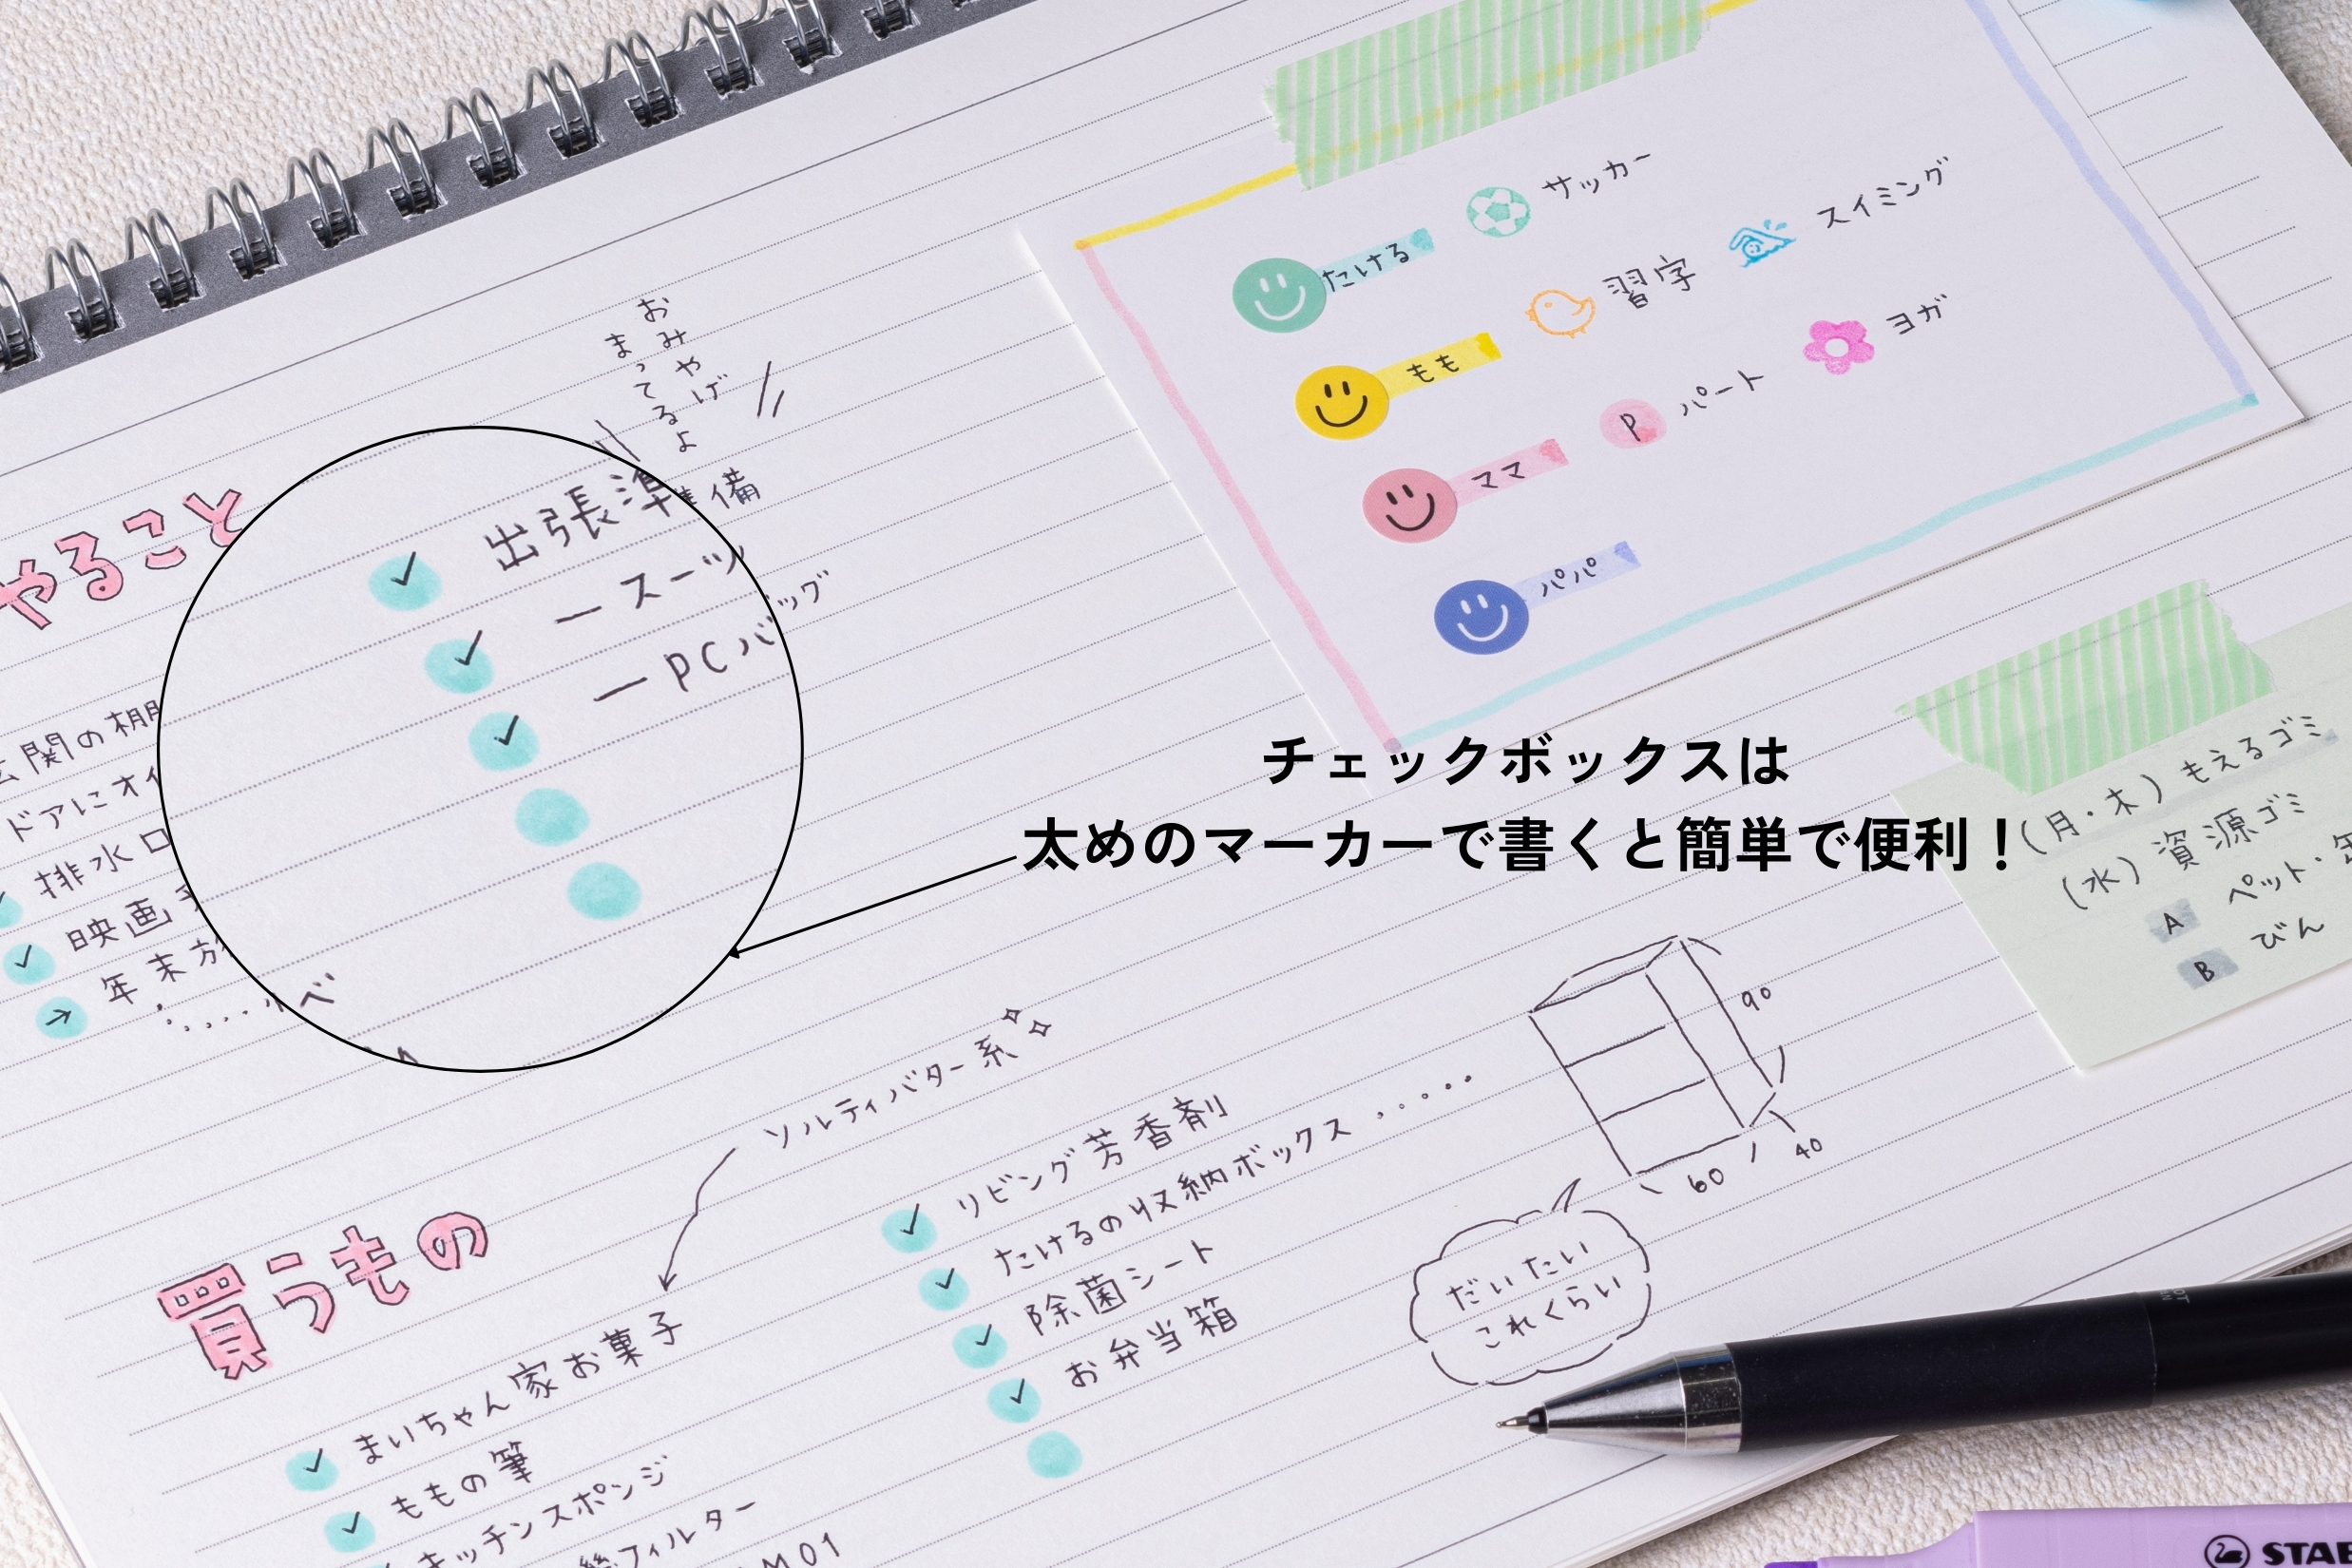 おみやげ
まってるよ
やること
出張準備
ースーツ
ーPCバッグ
玄関の棚
ドアにオイ
排水口
映画
年末
たける
サッカー
もも
習字
スイミング
ママ
パート
P
ヨガ
パパ
チェックボックスは
太めのマーカーで書くと簡単で便利！
(月・木) もえるゴミ
(水) 資源ゴミ
A ペット・缶
B びん
ソルティバター系
買うもの
まいちゃん家お菓子
ももの筆
キッチンスポンジ
フィルター
M01
リビング芳香剤
たけるの収納ボックス
除菌シート
お弁当箱
90
60
40
だいたい
これくらい
STAB